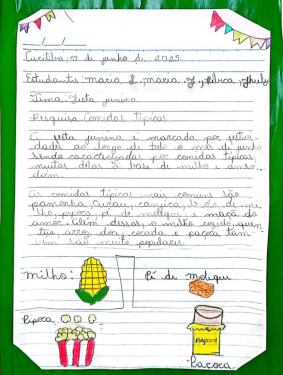 __/__/__
Curitiba, 10 de junho de 2025
Estudantes: Maria L., Maria J.,
Tema: Festa junina
Pesquisa Comidas típicas
A festa junina é marcada por
ao longo de todo o mês de junho
sendo caracterizadas por comidas típicas,
muitas delas à base de milho e amen-
doim.
As comidas típicas mais comuns são
pamonha, curau, canjica, bolo de mi-
lho, pipoca, pé de moliqui, e maçã do
amor. Além dessas, o milho cozido, quen-
tão, arroz doce, cocada e paçoca tam-
bém são muito populares.
Milho:
Pé de Moliqui
Pipoca
Paçoca
Paçoca